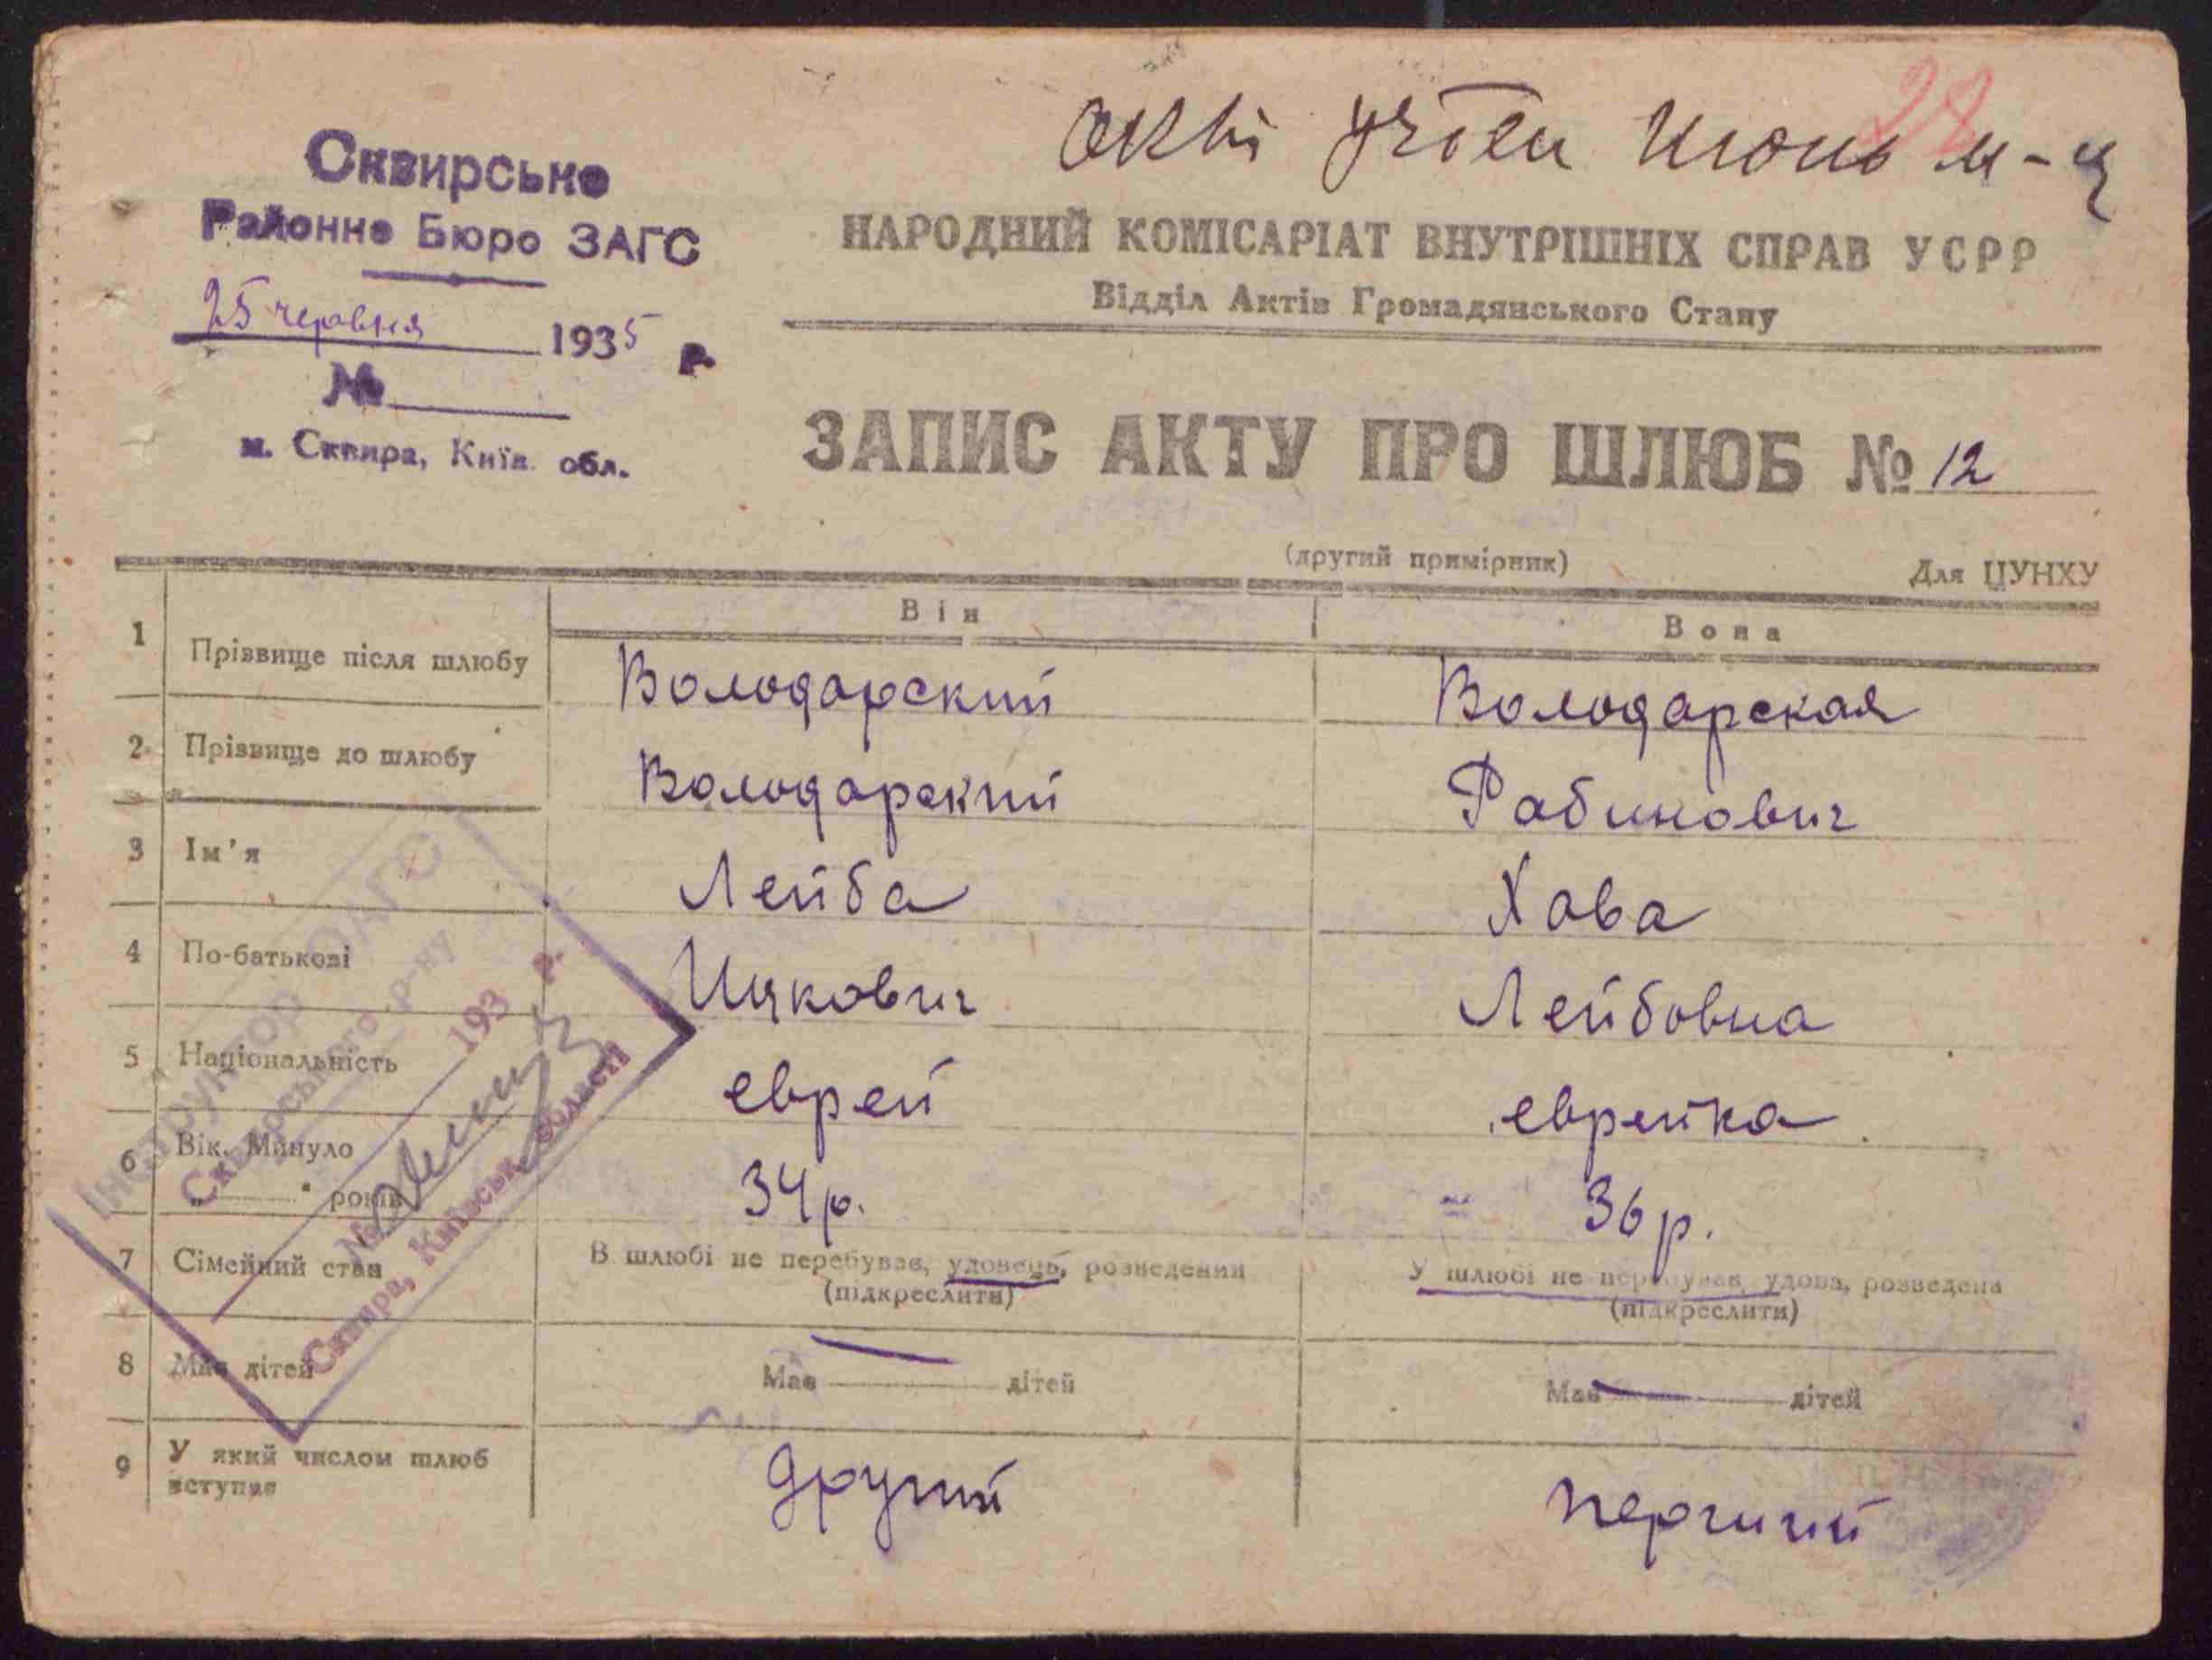 28
Июнь м-ц
Сквирське
Районне Бюро ЗАГС
25 червня 1935 р.
№
м. Сквира, Київ. обл.
НАРОДНИЙ КОМІСАРІАТ ВНУТРІШНІХ СПРАВ УСРР
Відділ Актів Громадянського Стану
ЗАПИС АКТУ ПРО ШЛЮБ № 12
(другий примірник)
Для ЦУНХУ
Він Вона
1 Прізвище після шлюбу Володарский Володарская
2 Прізвище до шлюбу Володарский Рабинович
3 Ім'я Лейба Хава
4 По-батькові Ицкович Лейбовна
5 Національність еврей еврейка
6 Вік. Минуло
„ “ років 34 р. 36 р.
7 Сімейний стан В шлюбі не перебував, удовець, розведений У шлюбі не перебував, удова, розведена
(підкреслити) (підкреслити)
8 Має дітей Має дітей Має дітей
9 У який числом шлюб
вступив другий первий
Інструктор ЗАГС
Сквирського р-ну
193 р.
№
Сквира, Київськ. області